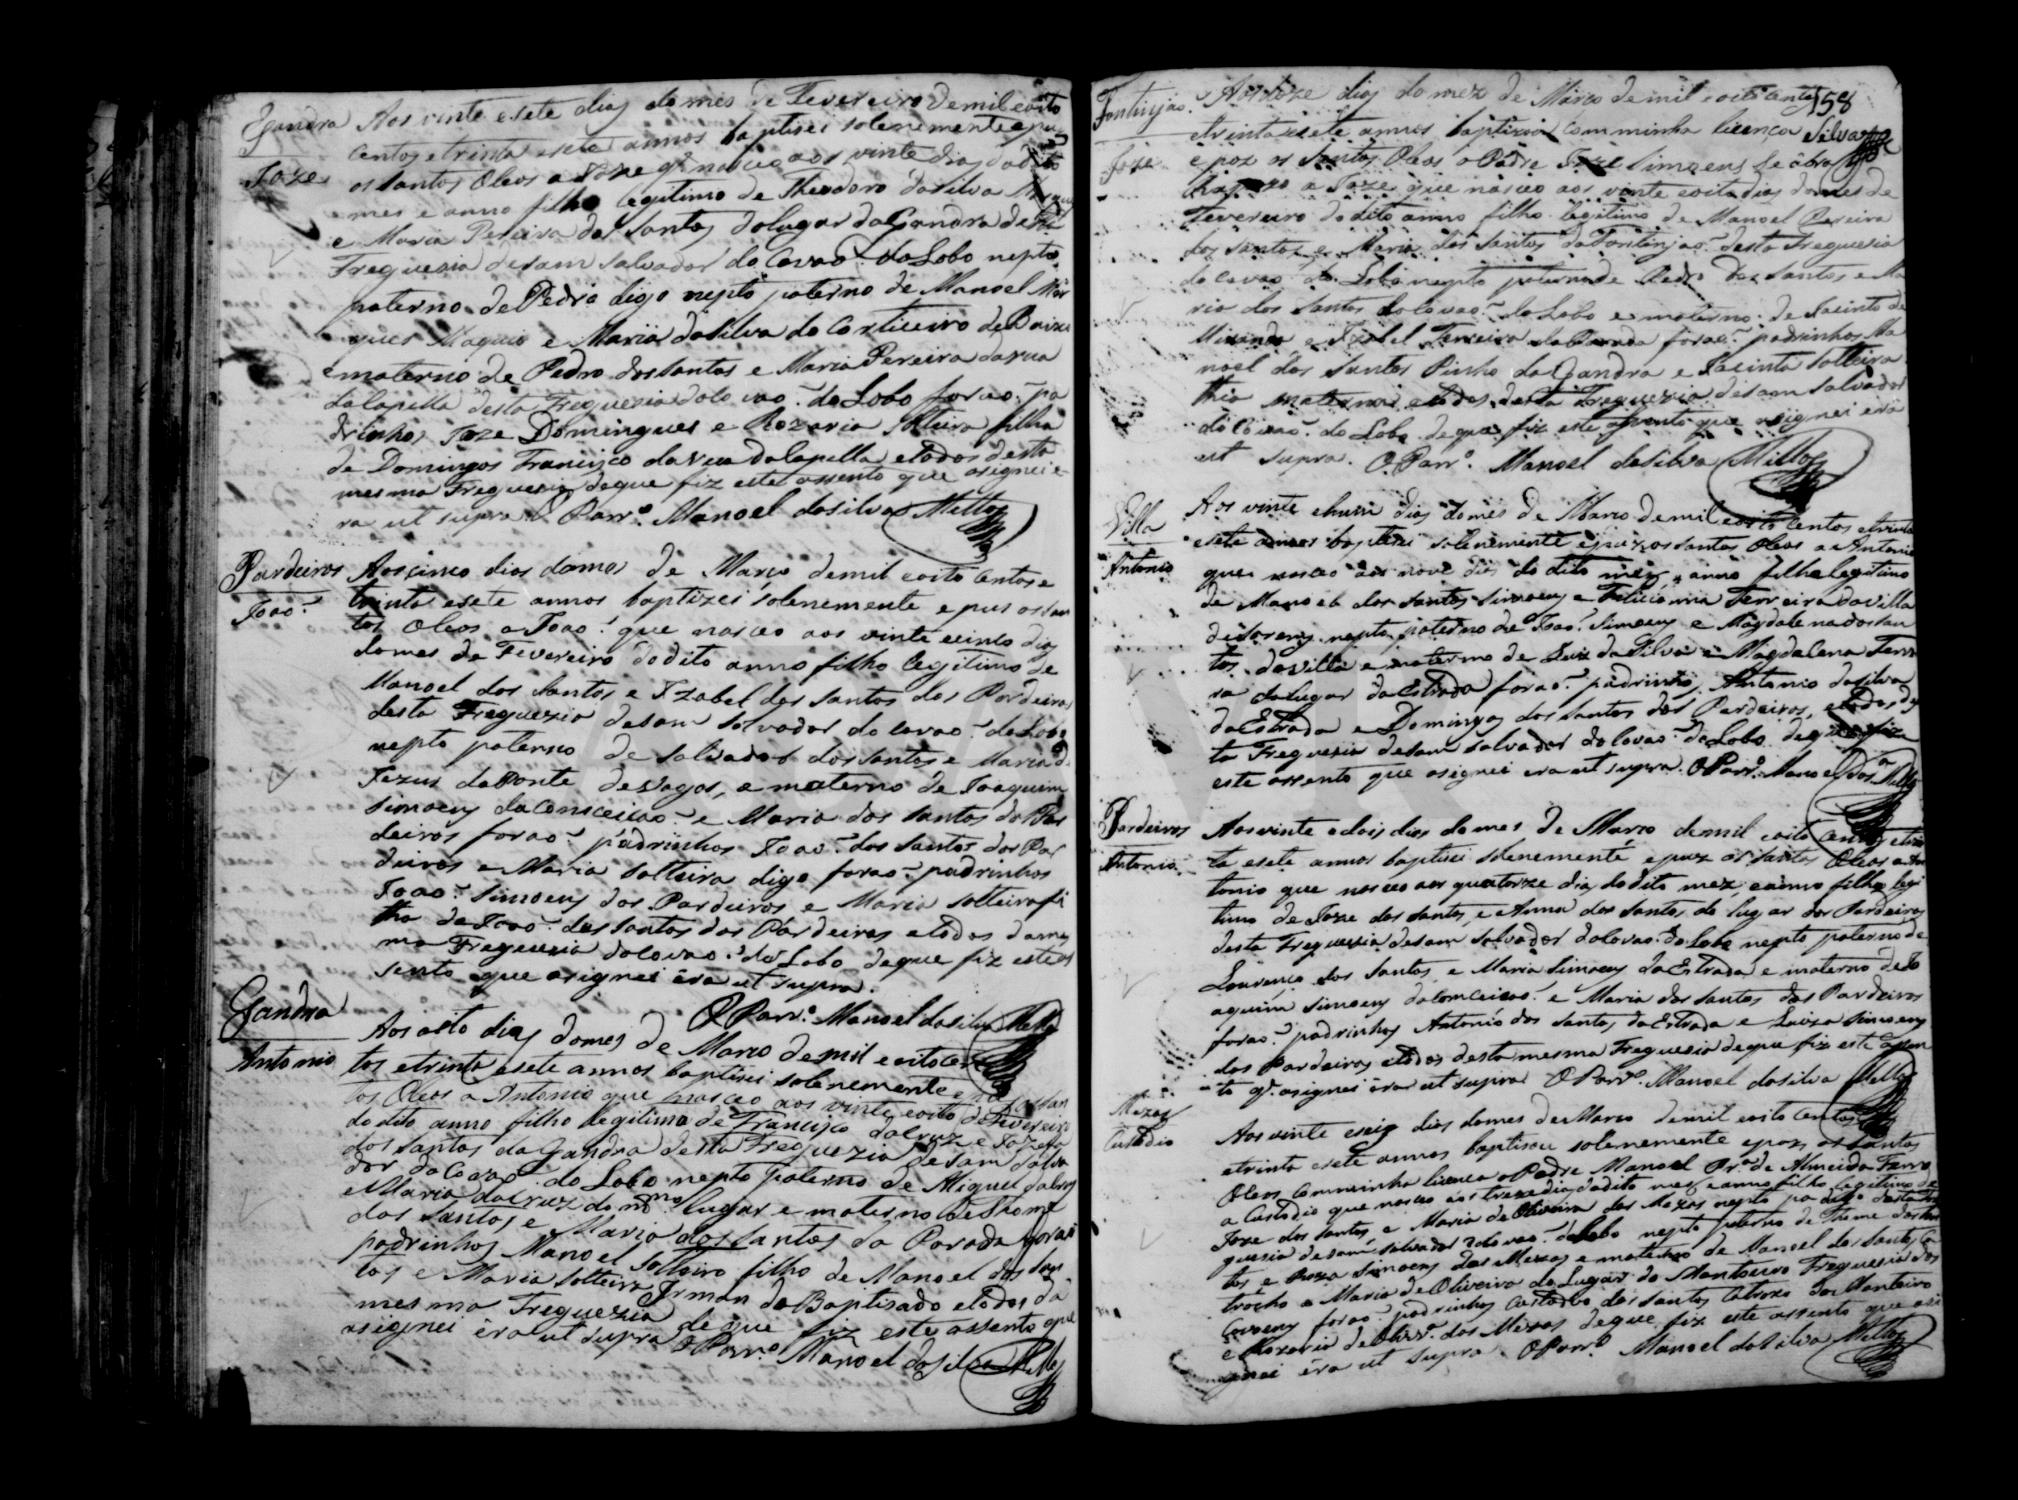 Gandra
Joze
Aos vinte e sete dias do mes de Fevereiro de mil e oito
centos e trinta e sete annos baptisei solenemente e pus
os santos Oleos a Joze q. nasceo aos vinte dias do dito
mes e anno filho legitimo de Theodoro da Silva
e Maria Pereira dos Santos do lugar da Gandra desta
Freguezia de sam Salvador do Covaõ do Lobo nepto
paterno de Pedro digo nepto paterno de Manoel Mar
ques e Maria da Silva do Corticeiro de Baixo
e materno de Pedro dos Santos e Maria Pereira da rua
da Capella desta Freguezia do Covaõ do Lobo foraõ pa
drinhos Joze Domingues e Rozaria solteira filha
de Domingos Francisco da rua da Capella e todos desta
mesma Freguezia de que fiz este assento que asignei e
ra ut supra O Parr.º Manoel da Silva Mello
Pardeiros
Joaõ
Aos cinco dias do mes de Marco de mil e oito centos e
trinta e sete annos baptizei solenemente e pus os san
tos Oleos a Joaõ que nasceo aos vinte e cinco dias
do mes de Fevereiro do dito anno filho legitimo de
Manoel dos Santos e Izabel dos Santos dos Pardeiros
desta Freguezia de sam Salvador do Covaõ do Lobo
nepto paterno de Salvador dos Santos e Maria de
Jezus da Ponte de Vagos, e materno de Joaquim
Simoens da Conceicaõ e Maria dos Santos dos Par
deiros foraõ padrinhos Joaõ dos Santos dos Par
deiros e Maria solteira digo foraõ padrinhos
Joaõ Simoens dos Pardeiros e Maria solteira fi
lha de Joaõ dos Santos dos Pardeiros e todos da mes
ma Freguezia do Covaõ do Lobo de que fiz este as
sento que asignei era ut supra.
O Parr.º Manoel da Silva Mello
Gandra
Antonio
Aos oito dias do mes de Marco de mil e oito cen
tos e trinta e sete annos baptisei solenemente e pus os san
tos Oleos a Antonio que nasceo aos vinte e oito de Fevereiro
do dito anno filho legitimo de Francisco da Cruz e Jozefa
dos Santos da Gandra desta Freguezia de sam Salva
dor do Covaõ do Lobo nepto paterno de Miguel da Cruz
e Maria da Cruz do m.mo lugar e materno de Thome
dos Santos e Maria dos Santos da Parada foraõ
padrinhos Manoel solteiro filho de Manoel dos San
tos e Maria solteira Irman do Baptisado e todos da
mesma Freguezia de que fiz este assento que
asignei era ut supra O Parr.º Manoel da Silva Mello
158
Silva
Fontinjaõ
Joze
Aos doze dias do mez de Marco de mil e oito centos
e trinta e sete annos baptizou com minha licenca
e poz os Santos Oleos o Padre Joze Simoens
a Joze que nasceo aos vinte e oito dias do mes de
Fevereiro do dito anno filho legitimo de Manoel Pereira
dos Santos e Maria dos Santos da Fontinjaõ desta Freguezia
do Covaõ do Lobo nepto paterno de Pedro dos Santos e Ma
ria dos Santos do Covaõ do Lobo e materno de Jacinto de
Miranda e Izabel Ferreira da Parada foraõ padrinhos Ma
noel dos Santos Pinho da Gandra e Jacinta solteira
thia materna e todos desta Freguezia de sam Salvador
do Covaõ do Lobo de que fiz este assento que asignei era
ut supra. O Parr.º Manoel da Silva Mello
Villa
Antonio
Aos vinte e hum dias do mes de Marco de mil e oito centos e trinta
e sete annos baptizei solenemente e puz os santos Oleos a Antonio
que nasceo aos nove dias do dito mez e anno filho legitimo
de Manoel dos Santos Simoens e Feliciana Ferreira da Villa
de Sorens nepto paterno de Joaõ Simoens e Magdalena dos San
tos da Villa e materno de Luis da Silva e Magdalena Ferrei
ra do lugar da Estrada foraõ padrinhos Antonio da Silva
da Estrada e Domingas dos Santos dos Pardeiros, e todos des
ta Freguezia de sam Salvador do Covaõ do Lobo de que fiz
este assento que asignei era ut supra. O Parr.º Manoel da S.ª Mello
Pardeiros
Antonio
Aos vinte e dois dias do mes de Marco de mil e oito centos e trin
ta e sete annos baptisei solenemente e puz os santos Oleos a An
tonio que nasceo aos quatorze dias do dito mez e anno filho legi
timo de Joze dos Santos, e Anna dos Santos do lugar dos Pardeiros
desta Freguezia de sam Salvador do Covaõ do Lobo nepto paterno de
Lourenço dos Santos, e Maria Simoens da Estrada e materno de Jo
aquim Simoens da Conceicaõ e Maria dos Santos dos Pardeiros
foraõ padrinhos Antonio dos Santos da Estrada e Luiza Simoens
dos Pardeiros e todos desta mesma Freguezia de que fiz este assen
to q. asignei era ut supra O Parr.º Manoel da Silva Mello
Mezas
Custodio
Aos vinte e seis dias do mes de Marco de mil e oito centos
e trinta e sete annos baptisou solenemente e pos os santos
Oleos com minha licenca o Padre Manoel Pr.ª de Almeida Ferro
a Custodio que nasceo aos treze dias do dito mes e anno filho legitimo de
Joze dos Santos e Maria de Oliveira das Mezas nepto pa digo desta Fre
guezia de sam Salvador do Covaõ do Lobo nepto paterno de Thome dos San
tos e Roza Simoens das Mezas e materno de Manoel dos Santos
e Maria de Oliveira do Lugar do Montouro Freguezia dos
Covoens foraõ padrinhos Custodio dos Santos do Montoiro
e Rozaria de Oliv.ª das Mezas de que fiz este assento que asi
gnei era ut supra O Parr.º Manoel da Silva Mello